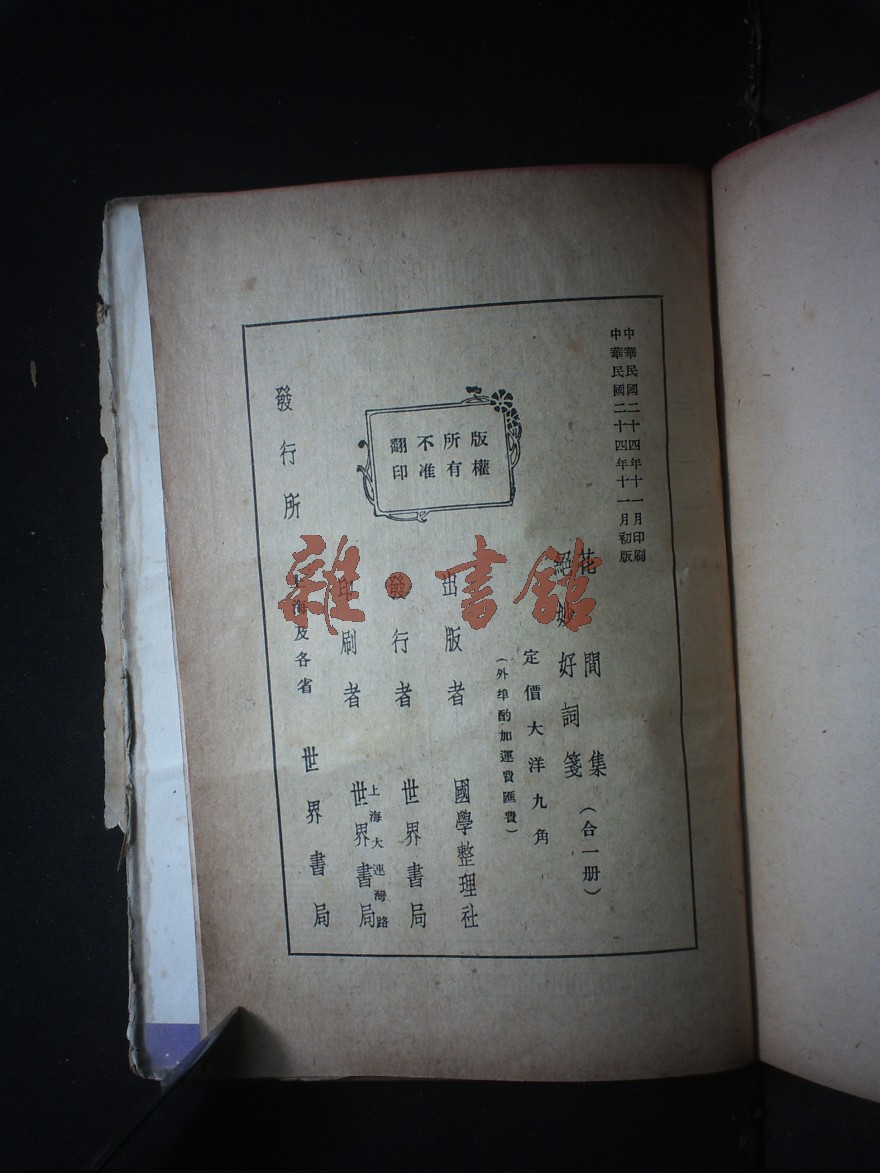 中華民國二十四年十一月印刷
中華民國二十四年十一月初版
花間集
絕妙好詞箋
（合一册）
定價大洋九角
（外埠酌加運費匯費）
版權
所有
不准
翻印
出版者 國學整理社
發行者 世界書局
印刷者 上海大連灣路
世界書局
發行所 上海及各省 世界書局
雜·書館